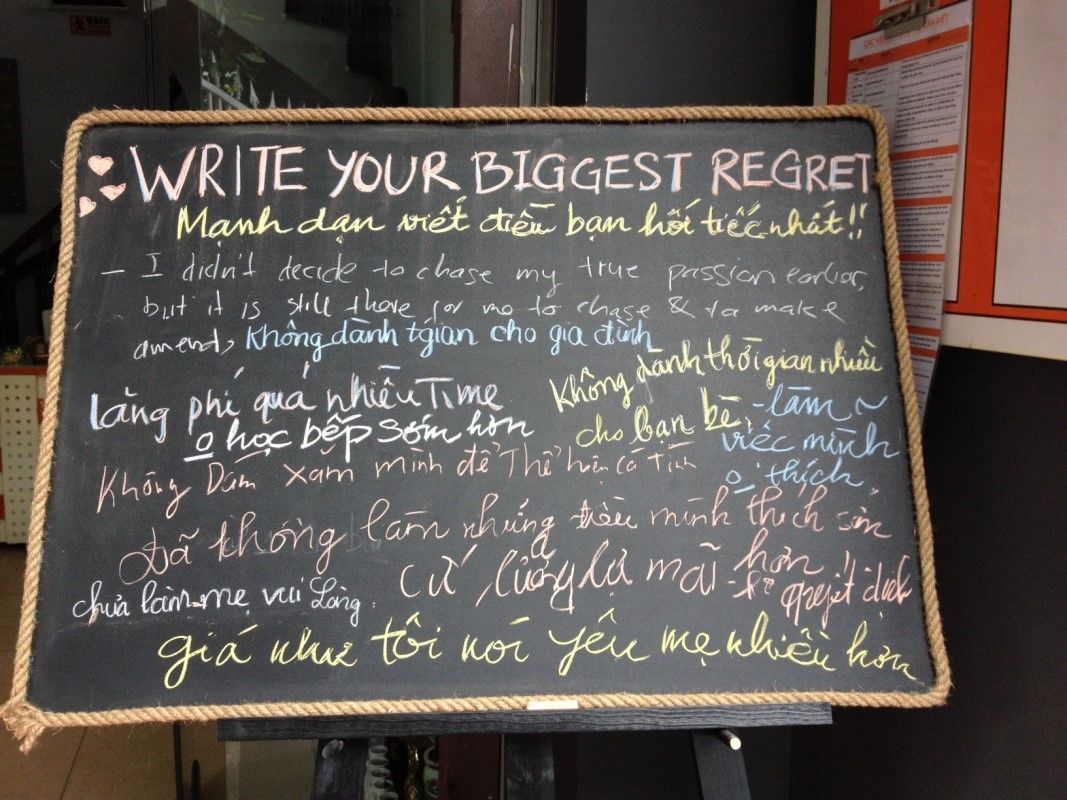 WRITE YOUR BIGGEST REGRET
Mạnh dạn viết điều bạn hối tiếc nhất!!
- I didn't decide to chase my true passion earlier,
but it is still there for me to chase & to make
amend,
Không dành tgian cho gia đình
Không dành thời gian nhiều
cho bạn bè,
Lãng phí quá nhiều Time
o học bếp sớm hơn
- làm ~
việc mình
o thích.
Không Dám Xăm mình để Thể hiện cá Tính
Đã không làm những điều mình thích sớm
hơn!
Cứ lưỡng lự mãi
quyết định
chưa làm mẹ vui Lòng.
giá như tôi nói yêu mẹ nhiều hơn